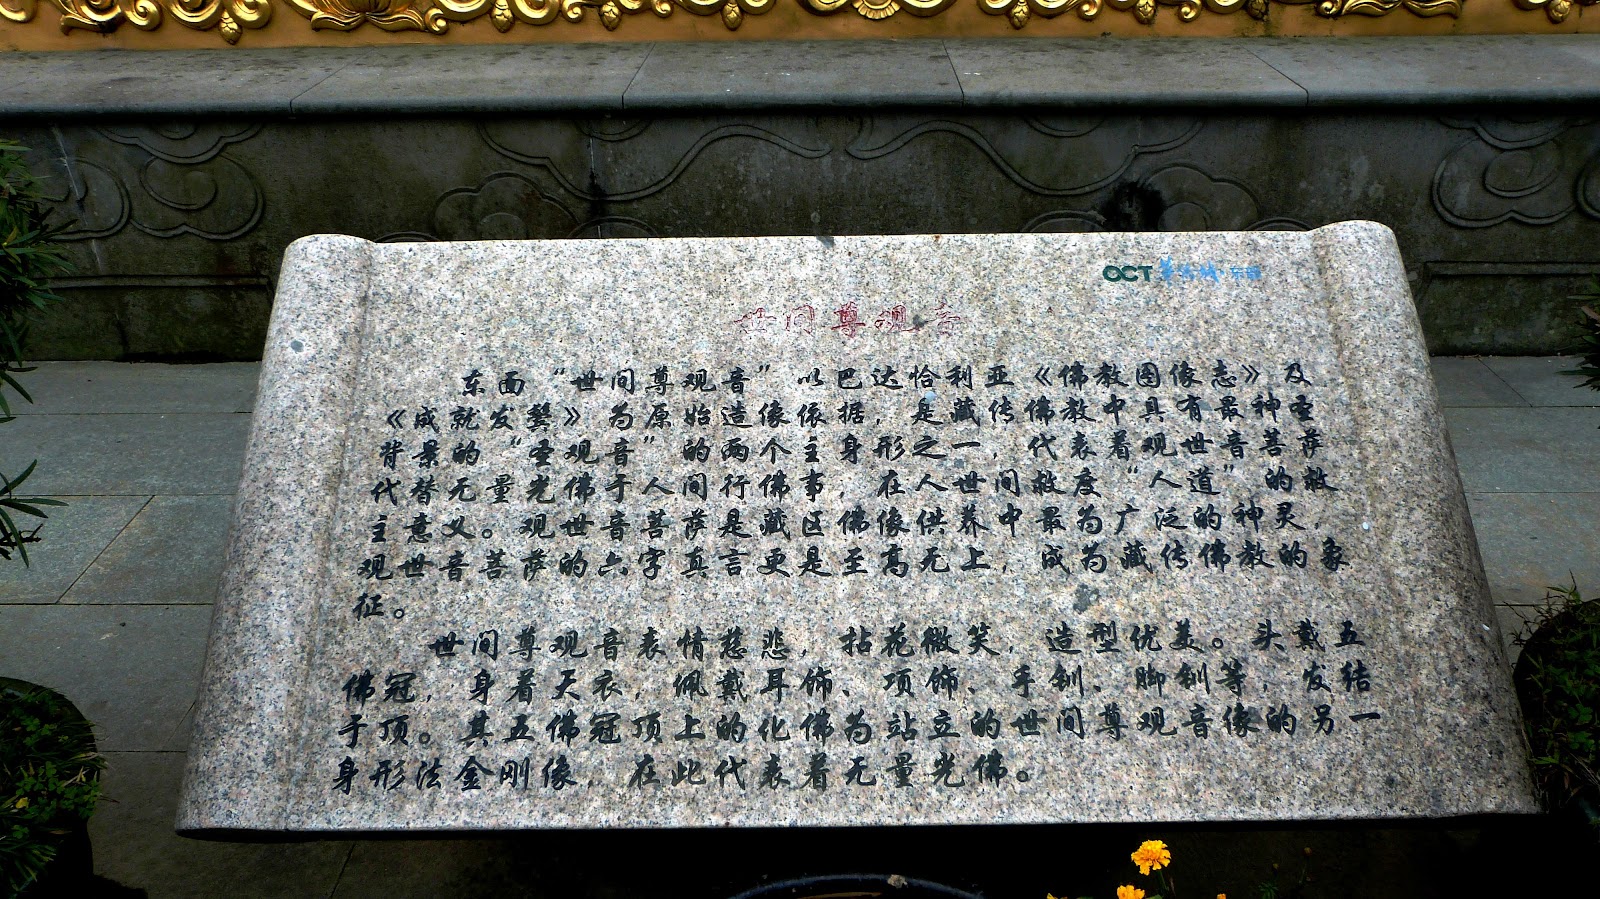 OCT 华侨城·东部
世间尊观音
东面“世间尊观音”以巴达恰利亚《佛教图像志》及
《成就发鬘》为原始造像依据，是藏传佛教中具有最神圣
背景的“圣观音”的两个主身形之一，代表着观世音菩萨
代替无量光佛于人间行佛事，在人世间救度“人道”的救
主意义。观世音菩萨是藏区佛像供养中最为广泛的神灵，
观世音菩萨的六字真言更是至高无上，成为藏传佛教的象
征。
世间尊观音表情慈悲，拈花微笑，造型优美。头戴五
佛冠，身着天衣，佩戴耳饰、项饰、手钏、脚钏等，发结
于顶。其五佛冠顶上的化佛为站立的世间尊观音像的另一
身形法金刚像，在此代表着无量光佛。